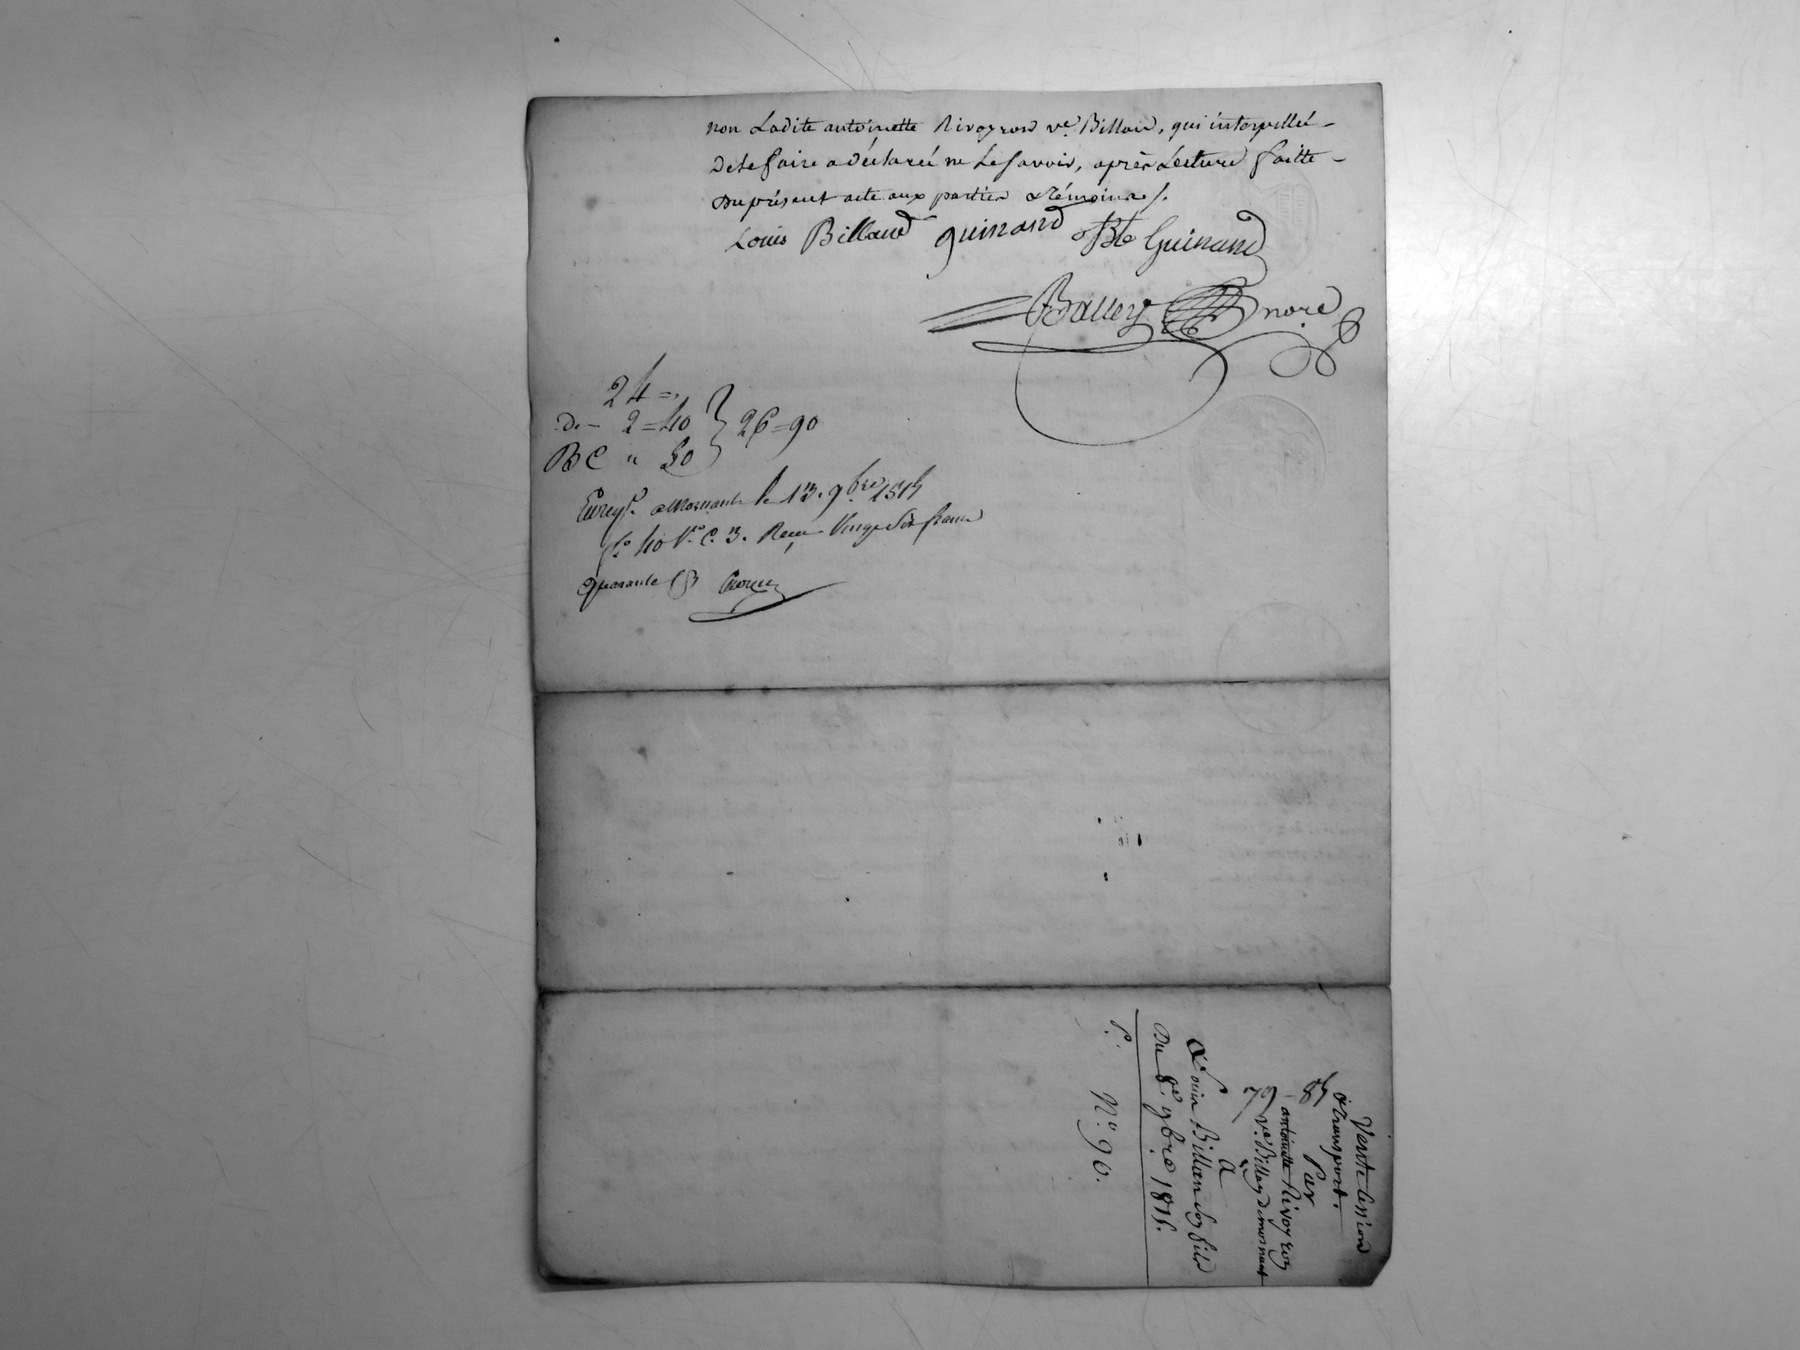 non Ladite antoinette Rivoyron ve. Billau, qui interpellée -
De le faire a Déclareé ne Le Savoir, après Lecture faitte -
Du présent acte aux parties & témoins /.
Louis Billaud guinand Bte Guinand
Ballety nore
24 =
De - 2 = 40 } 26 = 90
BC " 50
Enregt. a Mornant le 13. 9bre 181
fo. 40 Vo. C. 3. Recu Vingt Six francs
quarante
Vente Cession
& transport.
84
Par
79 - antoinette Rivoyron
ve. Billau de mornant
A
Louis Billau Son fils
Du 8 9bre 181
No. 90.